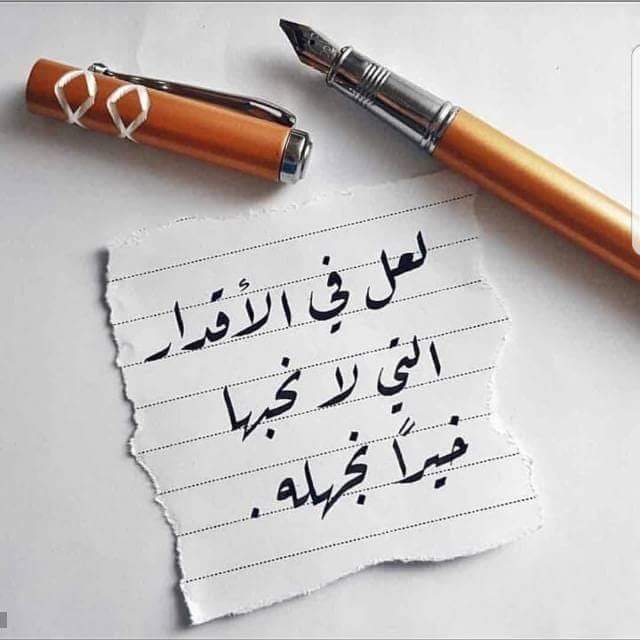 لعل في الأقدار
التي لا نحبها
خيراً نجهله .